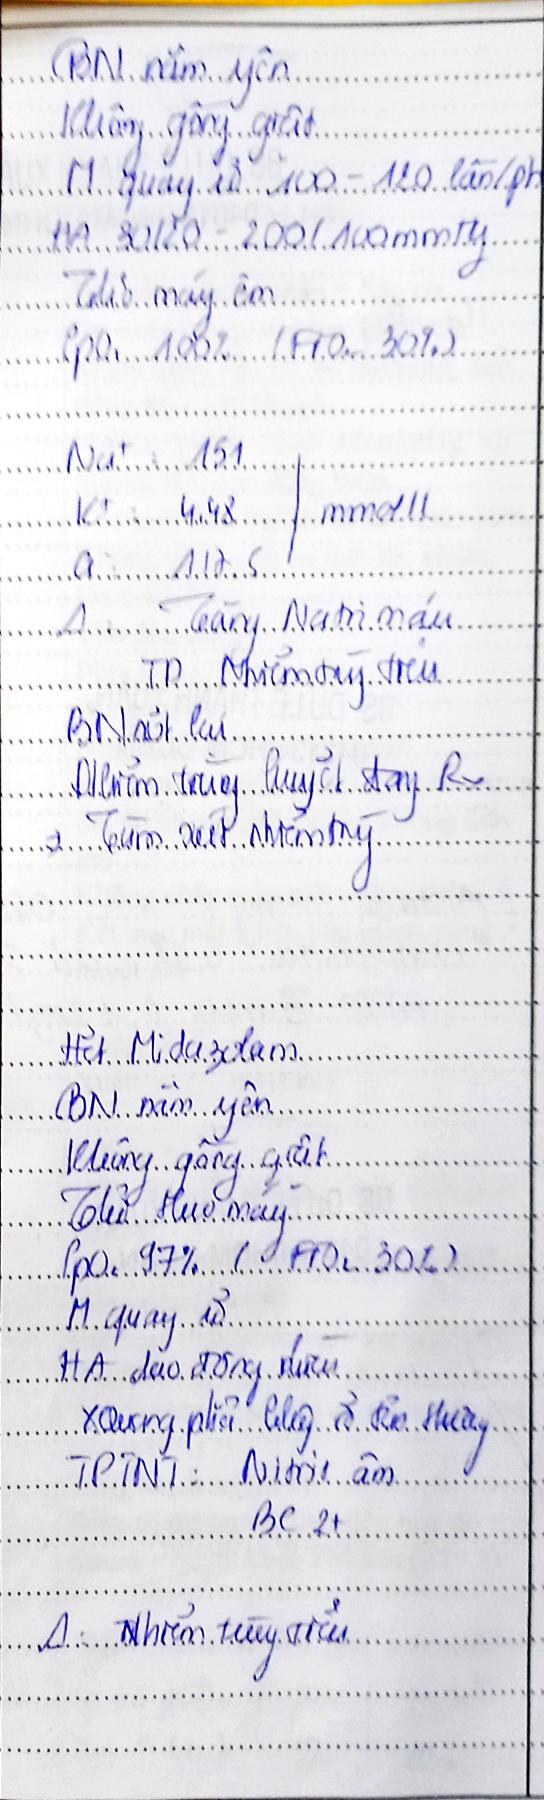 BN nằm yên
Không gồng giật
M quay rõ 100 - 120 lần/ph
HA 90/20 - 200/100 mmHg
Thở máy êm
SpO₂ 100% (FiO₂ 30%)
Na⁺ : 151
K⁺ : 4.48 mmol/l
Cl : 117.5
Δ: Tăng Natri máu
TD Nhiễm trùng tiểu
BN sốt lại
Nhiễm trùng huyết đang Rx
Tầm soát nhiễm trùng
Hết Midazolam
BN nằm yên
Không gồng giật
Thở theo máy
SpO₂ 97% (FiO₂ 30%)
M quay rõ
HA dao động nhiều
XQuang phổi không rõ tổn thương
TPTNT: Nitrit âm
BC 2+
Δ: Nhiễm trùng tiểu